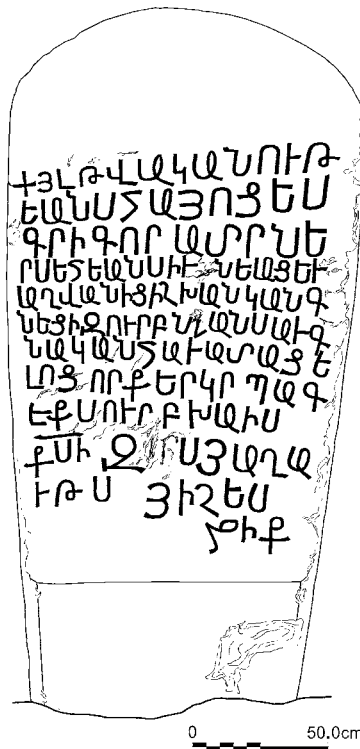 +ՅԼԹՎԱԿԱՆՈՒԹ
ԵԱՆՍՀԱՅՈՑ ԵՍ
ԳՐԻԳՈՐ ԱՄՐՆԵ
ՐՍԵՀԵԱՆՍԻՒ ՆԵԱՑԵՒ
ԱՂՎԱՆԻՑԻՇԽԱՆԿԱՆԳ
ՆԵՑԻԶՈՒՐԲՆՇԱՆՍԱՒԳ
ՆԱԿԱՆՀԱՒԱՏԱՑԵ
ԼՈՑ ՈՐՔ ԵՐԿՐ ՊԱԳ
ԷՔ ՍՈՒՐԲ ԽԱՒՍ
ՔՍԻ Զ ՍՅԱՂԱ
ՒԹՍ ՅԻՇԵՍ
ՋԻՔ